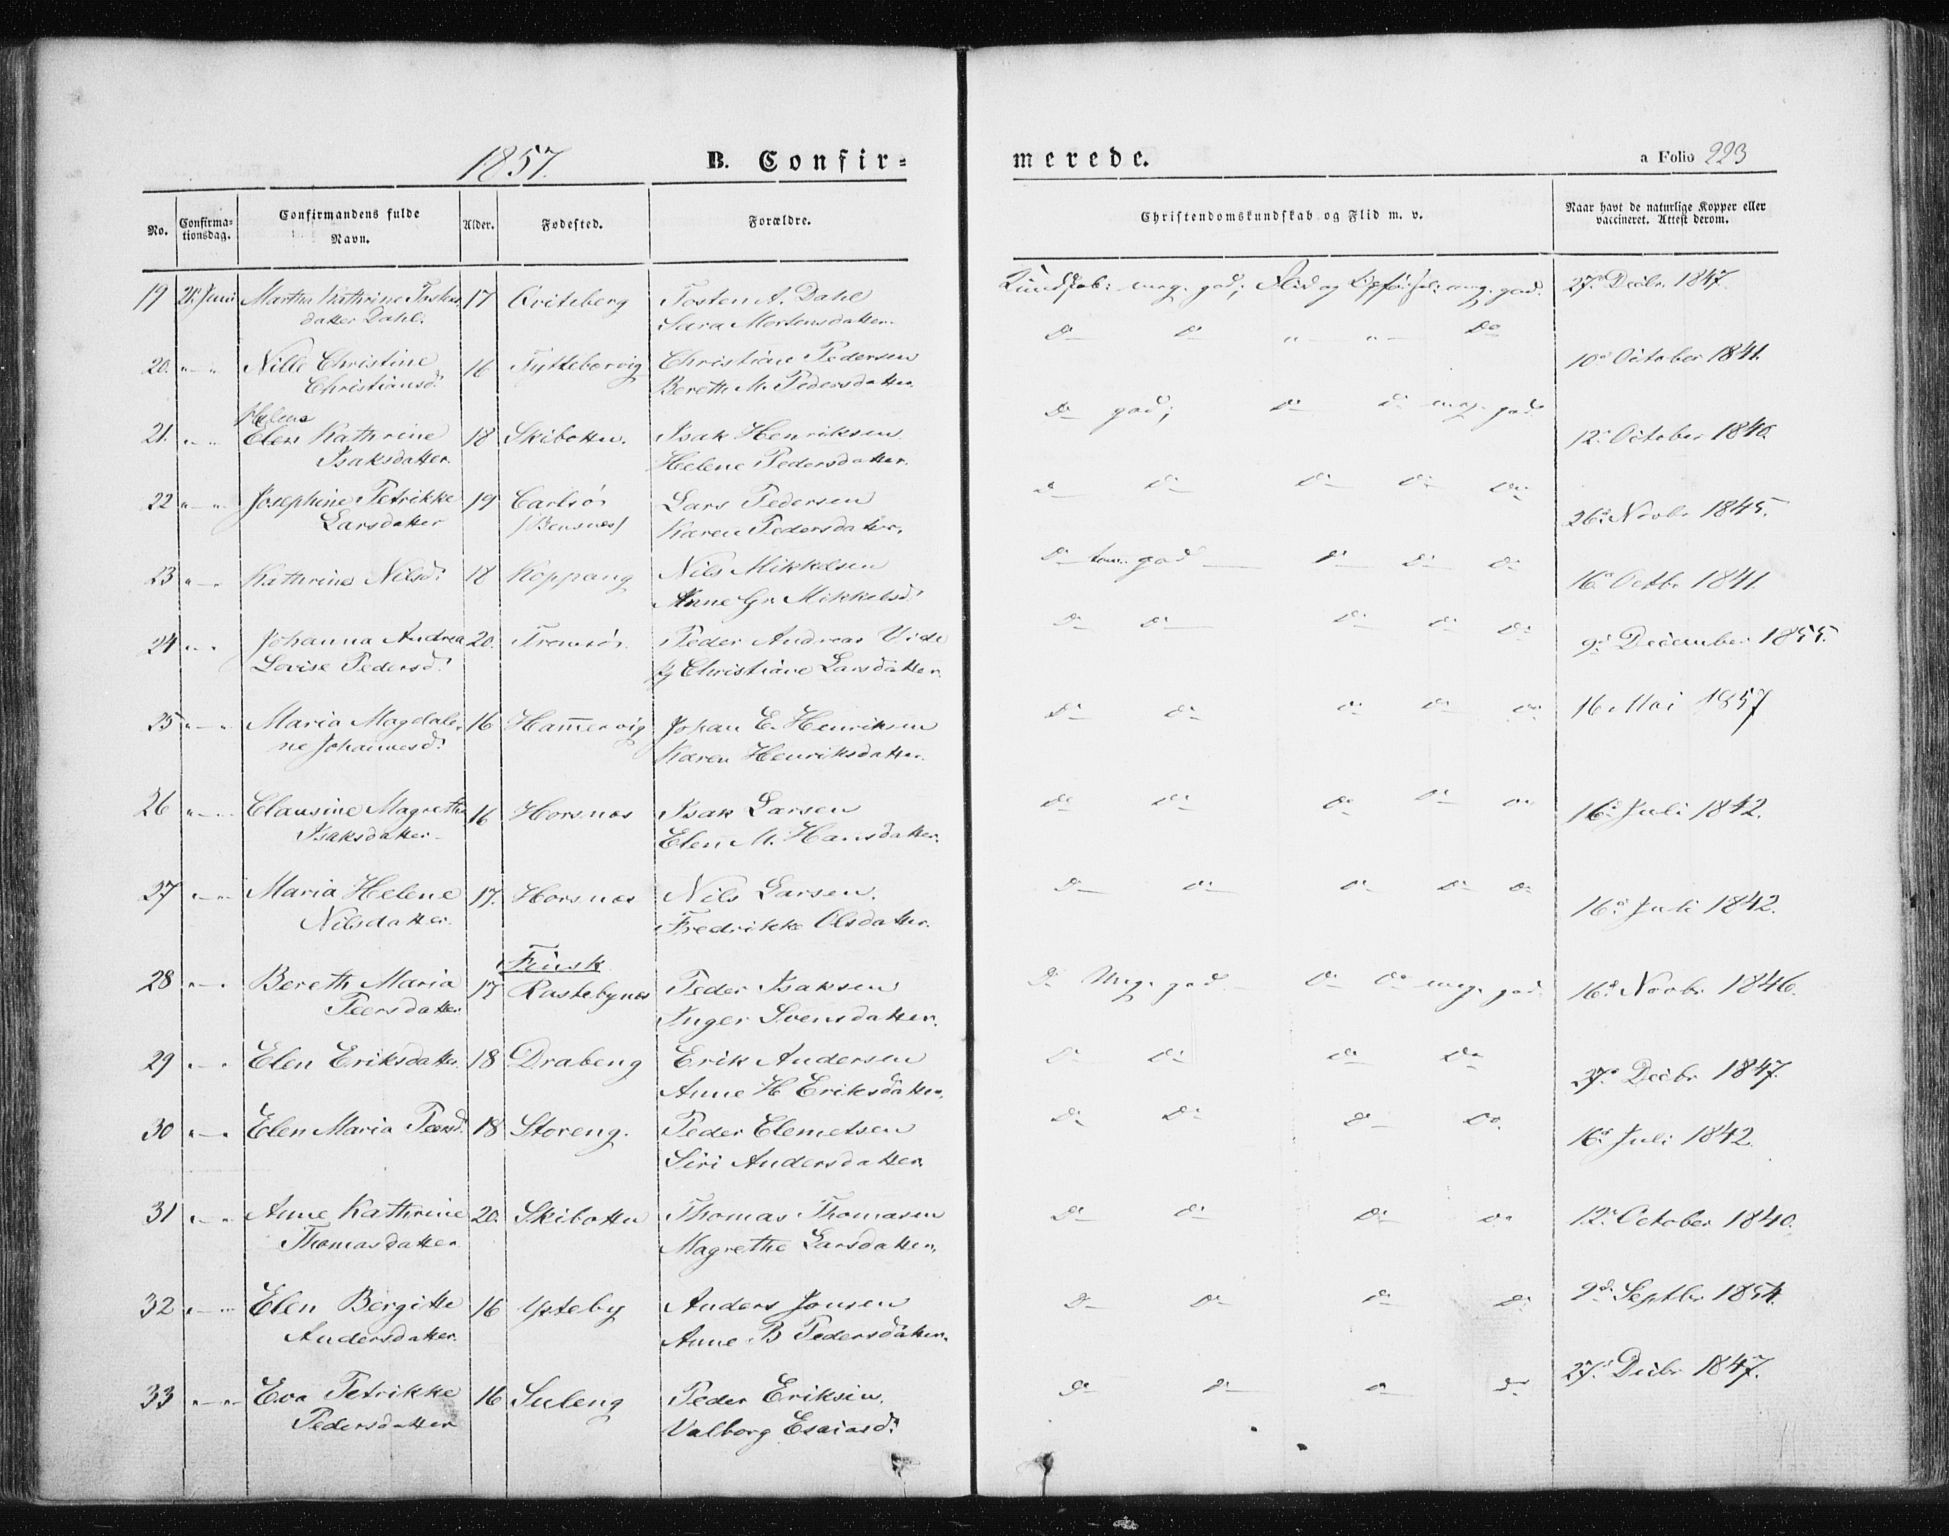 1857. B. Confir-
merede. a Folio 223
No. Confirma-tionsdag. Confirmandens fulde Navn. Alder. Fødested. Forældre. Christendomskundskab og Flid m. v. Naar havt de naturlige Kopper eller vaccineret. Attest derom.
19 21. Juni Martha Kathrine 17 Qviteberg Tosten A. Dahl Kundskab: meg. god; Flid og Opførsel: meg. god. 27d Decbr. 1847.
datter Dahl. Sara Mortensdatter.
20. " — " Nille Christine 16 Fyttebærvig Christiane Pedersen Do Do " — " — Do 10d October 1841.
Christiansd. Bereth M. Pedersdatter.
Helene
21. " — " Elen Kathrine 18 Skibotten. Isak Henriksen Do god; Do Do meg. god 12d October 1840.
Isaksdatter. Helene Pedersdatter.
22 " — " Josephine Petrikke 19 Carlsø Lars Pedersen Do Do Do Do Do 26d Novbr. 1845.
Larsdatter (Bensnes) Karen Pedersdatter.
23 " — " Kathrine Nilsd: 18 Koppang Nils Mikkelsen Do god Do Do Do 16d Octbr 1841.
Anne Gr. Mikkelsd:
24 " — " Johanna Andrea 20. Tromsø. Peder Andreas Do Do Do Do Do 9d December 1855.
Lovise Pedersd: Christiane Larsdatter.
25 " — " Maria Magdale- 16 Ham̄ervig Johan E. Henriksen Do Do Do Do Do 16 Mai 1857
ne Johannesd: Karen Henriksdatter.
26 " — " Clausine Magrethe 16 Horsnes Isak Larsen Do Do Do Do Do 16d Juli 1842.
Isaksdatter. Elen M. Hansdatter.
27 " — " Maria Helene 17. Horsnes Nils Larsen. Do Do Do Do Do 16d Juli 1842.
Nilsdatter. Fredrikke Olsdatter.
Finsk
28 " — " Bereth Maria 17 Rastebynes Peder Isaksen Do Meg. god. Do Do meg. god. 16d Novbr. 1846.
Peersdatter Inger Svensdatter.
29 " — " Elen Eriksdatter. 18 Drabeng Erik Andersen Do Do Do Do 27d Decbr 1847.
Anne H Eriksdatter.
30 " — " Elen Maria Peersd. 18 Storeng. Peder Clemetsen Do Do Do Do. 16d Juli 1842.
Siri Andersdatter.
31 " — " Anne Kathrine 20. Skibotten Thomas Thomasen Do Do Do Do 12d October 1840.
Thomasdatter Magrethe Larsdatter.
32 " — " Elen Bergitte 16 Ysteby Anders Jonsen Do Do Do Do 9d Septbr 1854.
Andersdatter. Anne B Pedersdatter.
33 " — " Eva Petrikke 16 Suleng Peder Eriksen. Do Do Do Do 27d Decbr 1847.
Pedersdatter Valborg Esaiasd: